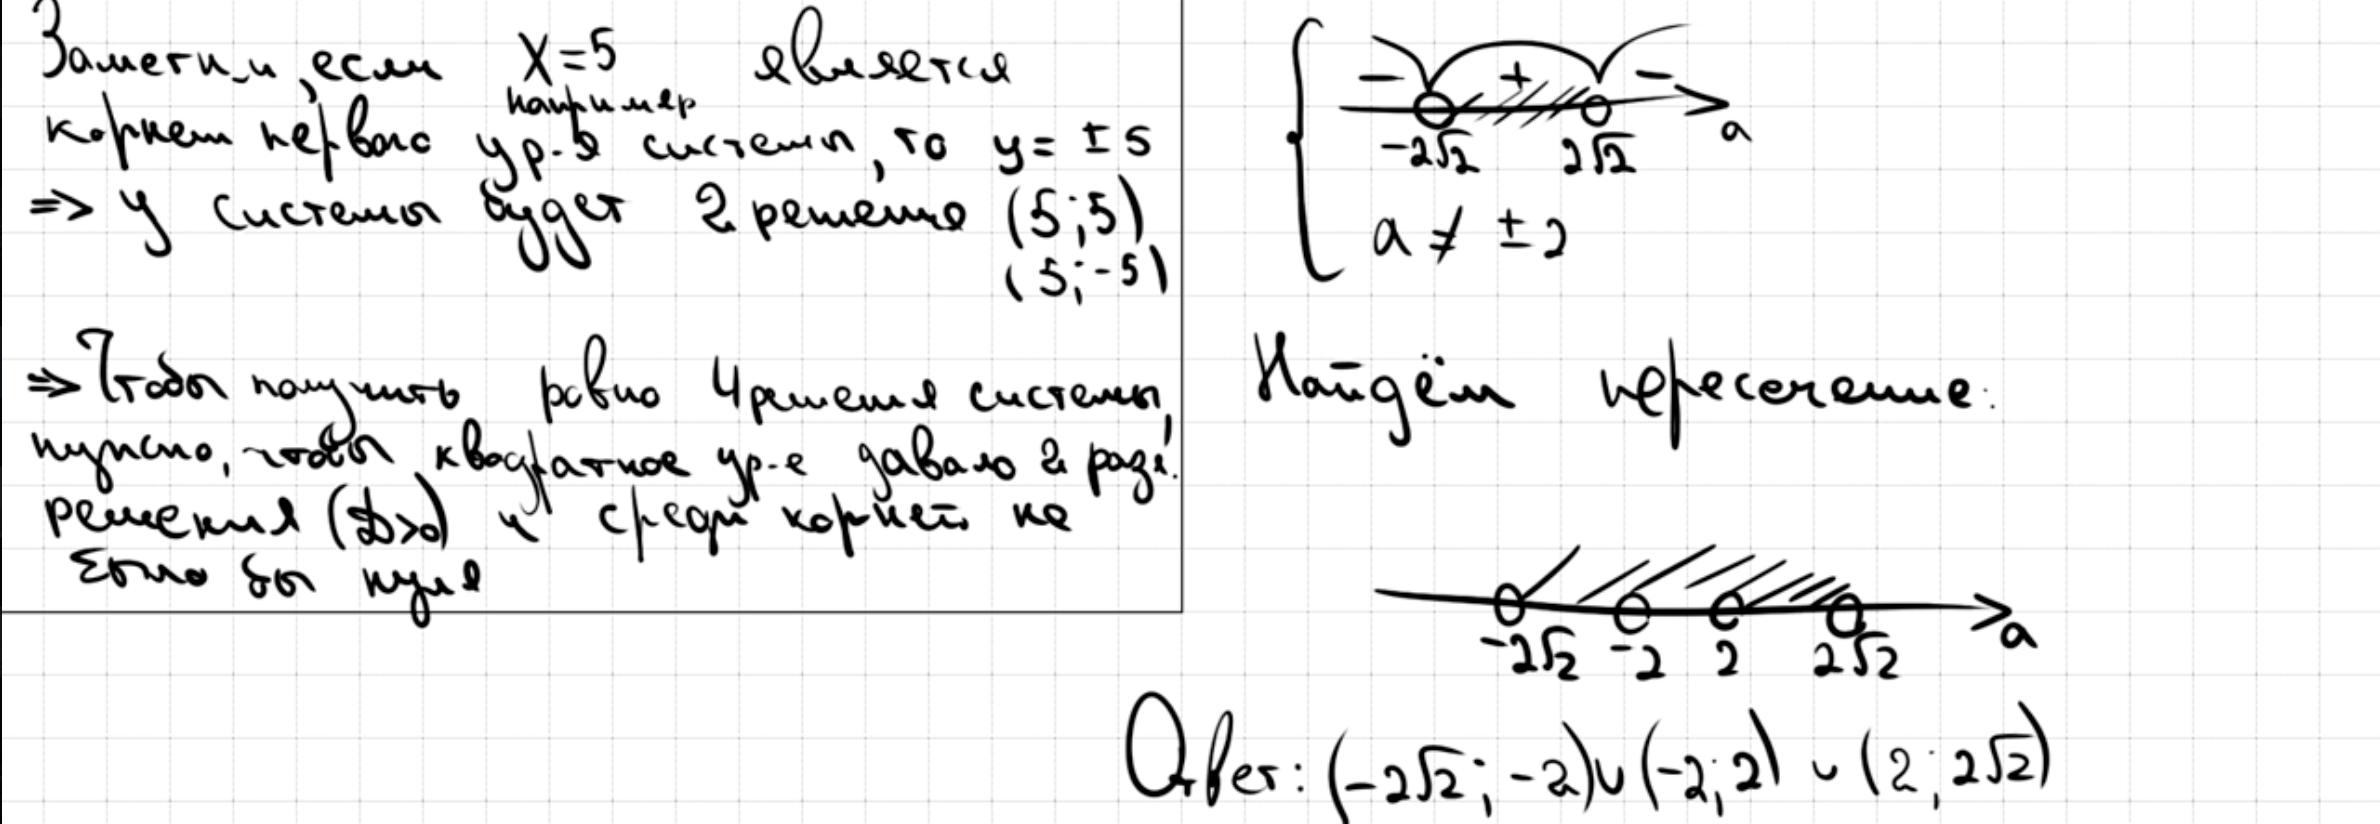 Заметим, если x=5 является
например
корнем первого ур-я системы, то y= ±5
=> у системы будет 2 решения (5;5)
(5;-5)
=> Чтобы получить ровно 4 решения системы,
нужно, чтобы квадратное ур-е давало 2 разл.
решения (D>0) и среди корней не
было бы нуля
- + -
-2√2 2√2 a
a ≠ ±2
Найдём пересечение:
-2√2 -2 2 2√2 a
Ответ: (-2√2; -2)∪(-2; 2) ∪ (2; 2√2)